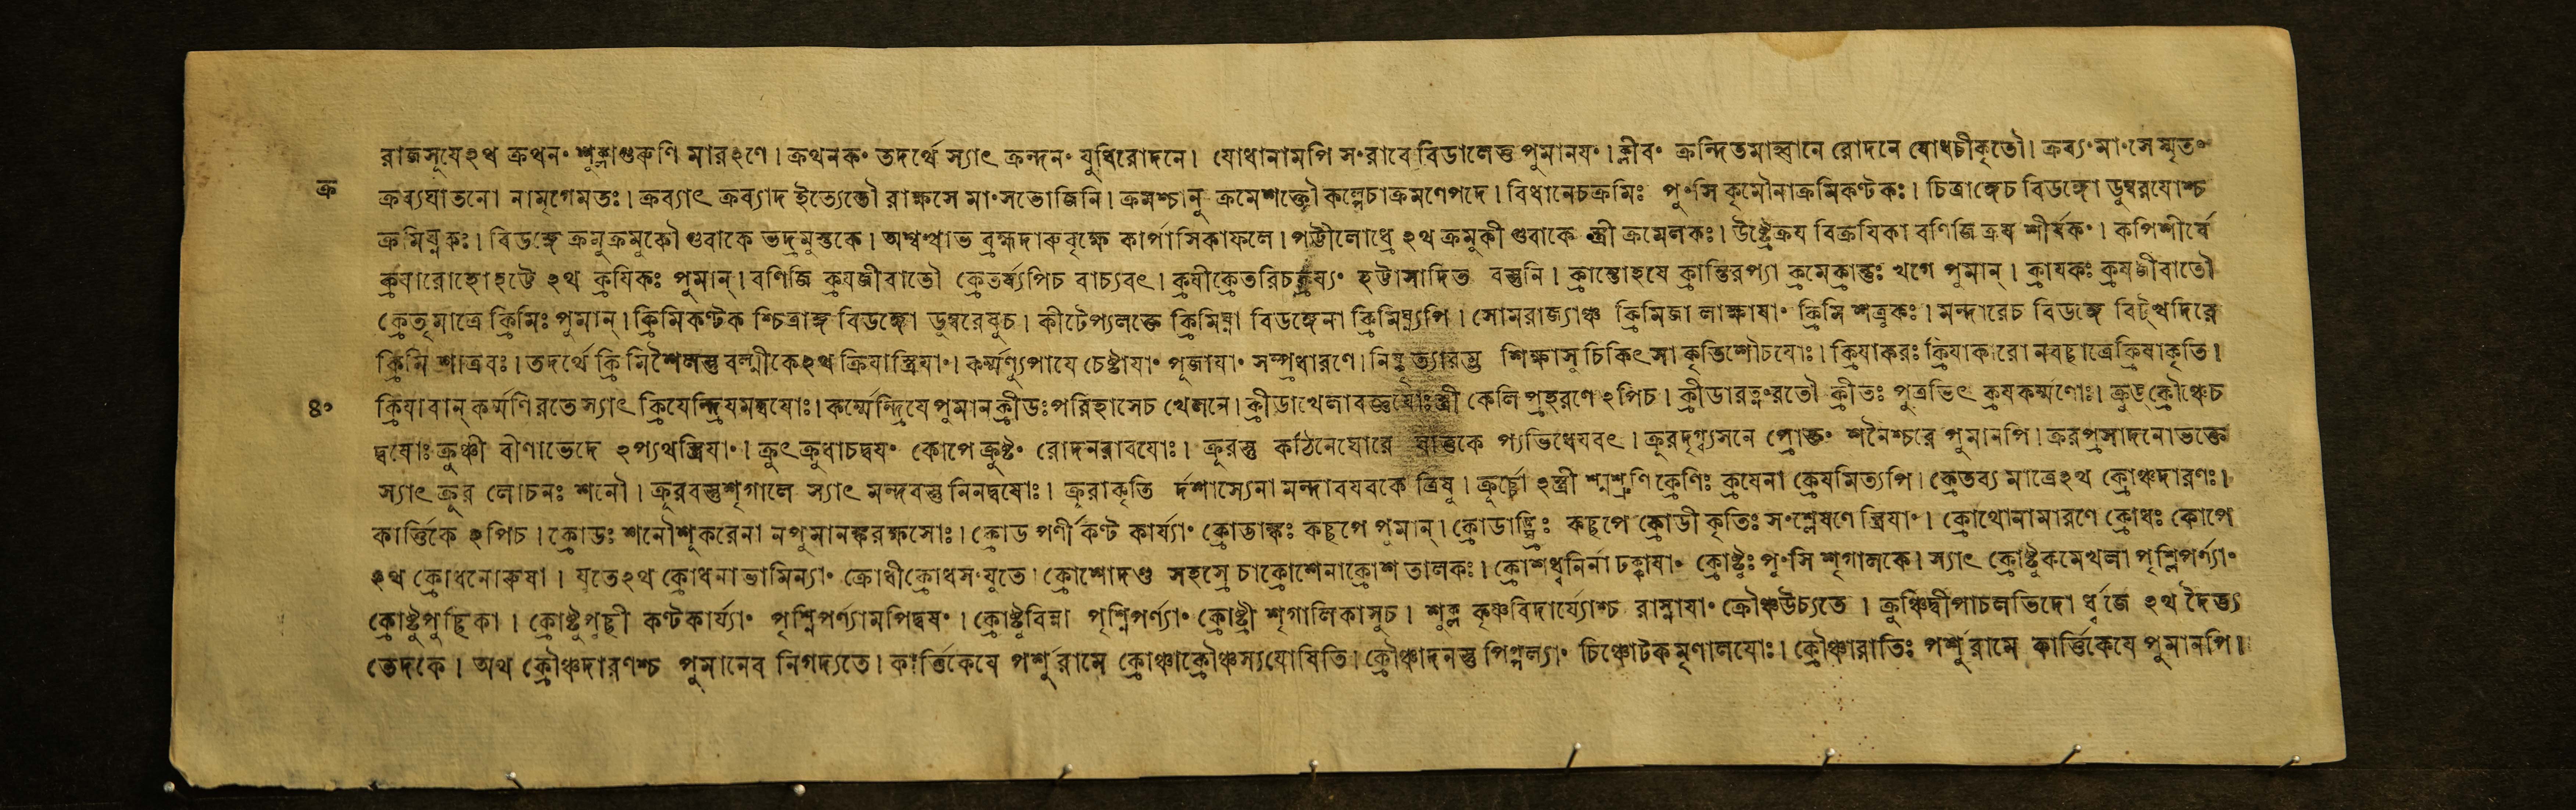 রাজসূযেঽথ ক্রথনং শুক্লাগুরুণি মারঽণে। ক্রথনকং তদর্থে স্যাৎ ক্রন্দনং যুধিরোদনে। যোধানামপি সংরাবে বিডালেস্তু পুমানযং। ক্লীবং ক্রন্দিতমাহ্বানে রোদনে যোধচীকৃতৌ। ক্রব্যং মাংসে মৃতং
ক্র
ক্রব্যঘাতনো নামৃগেমতঃ। ক্রব্যাৎ ক্রব্যাদ ইত্যেতৌ রাক্ষসে মাংসভোজিনি। ক্রমশ্চানু ক্রমেশক্তৌ কল্পেচাক্রমণেপদে। বিধানেচক্রমিঃ পুংসি কৃমৌনাক্রমিকণ্টকঃ। চিত্রাঙ্গেচ বিডঙ্গো ডুম্বরযোশ্চ
ক্রমিঘ্নকঃ। বিডঙ্গে ক্রমুক্রমুকৌ গুবাকে ভদ্রমুস্তকে। অশ্বত্থাভ ব্রহ্মদারুবৃক্ষে কার্পাসিকাফলে। পট্টীলোধ্রে ঽথ ক্রমুকী গুবাকে স্ত্রী ক্রমেলকঃ। উষ্ট্রেক্রয বিক্রযিকা বণিজি ক্রয শীর্ষকং। কপিশীর্ষে
ক্রযারোহোহট্টে ঽথ ক্রযিকঃ পুমান্। বণিজি ক্রযজীবাতৌ ক্রেতর্য্যপিচ বাচ্যবৎ। ক্রযীক্রেতরিচক্রয্যং হট্টাসাদিত বস্তুনি। ক্রান্তোহযে ক্রান্তিরপ্যা ক্রমেক্রান্তুঃ খগে পুমান্। ক্রাযকঃ ক্রযজীবাতৌ
ক্রেতৃমাত্রে ক্রিমিঃ পুমান্। ক্রিমিকণ্টক শ্চিত্রাঙ্গ বিডঙ্গো ডুম্বরেষুচ। কীটেপ্যলক্তে ক্রিমিঘ্না বিডঙ্গেনা ক্রিমিঘ্ন্যপি। সোমরাজ্যাঞ্চ ক্রিমিজা লাক্ষাযাং ক্রিমি শত্রুকঃ। মন্দারেচ বিডঙ্গে বিট্খদিরে
ক্রিমি শাত্রবঃ। তদর্থে ক্রিমিশৈলস্তু বল্মীকেঽথ ক্রিযাস্ত্রিযাং। কর্ম্মণ্যুপাযে চেষ্টাযাং পূজাযাং সম্প্রধারণে। নিষ্কৃত্যারম্ভ শিক্ষাসু চিকিৎসা কৃতিশৌচযোঃ। ক্রিযাকরঃ ক্রিযাকারো নবচ্ছাত্রেক্রিযাকৃতি।
৪০
ক্রিযাবান্ কর্ম্মণি রতে স্যাৎ ক্রিযেন্দ্রিযমদ্বযোঃ। কর্ম্মেন্দ্রিযে পুমানক্রীডঃপরিহাসেচ খেলনে। ক্রীডাখেলাবজ্ঞযোঃস্ত্রী কেলি প্রহরণে ঽপিচ। ক্রীডারত্নংরতৌ ক্রীতঃ পুত্রভিৎ ক্রযকর্ম্মণোঃ। ক্রুঙ্ক্রৌঞ্চেচ
দ্বযোঃ ক্রুঞ্চী বীণাভেদে ঽপ্যথস্ত্রিযাং। ক্রুৎ ক্রুধাচদ্বযং কোপে ক্রুষ্টং রোদনরাবযোঃ। ক্রূরস্তু কঠিনেঘোরে ঘাতুকে প্যভিধেযবৎ। ক্রূরদৃগ্ব্যসনে প্রোক্তং শনৈশ্চরে পুমানপি। ক্রূরপ্রসাদনোভক্তে
স্যাৎ ক্রূর লোচনঃ শনৌ। ক্রূরবস্তুশৃগালে স্যাৎ মন্দবস্তু নিনদ্বযোঃ। ক্রূরাকৃতি র্দশাস্যেনা মন্দাবযবকে ত্রিষু। ক্রূর্চ্চো ঽস্ত্রী শ্মশ্রুণি ক্রেণিঃ ক্রযেনা ক্রেযমিত্যপি। ক্রেতব্য মাত্রেঽথ ক্রোঞ্চদারণঃ।
কার্ত্তিকে ঽপিচ। ক্রোডঃ শনৌশূকরেনা নপুমানঙ্করক্ষসোঃ। ক্রোড পর্ণী কণ্ট কার্য্যাং ক্রোডাঙ্কঃ কচ্ছপে পুমান্। ক্রোডাঙ্ঘ্রিঃ কচ্ছপে ক্রোডী কৃতিঃ সংশ্লেষণে স্ত্রিযাং। ক্রোথোনামারণে ক্রোধঃ কোপে
ঽথ ক্রোধনোরুষা। যুতেঽথ ক্রোধনাভামিন্যাং ক্রোধীক্রোধসংযুতে। ক্রোশোদণ্ড সহস্রে চাক্রোশেনাক্রোশ তালকঃ। ক্রোশধ্বনির্না ঢক্কাযাং ক্রোষ্টুঃ পুংসি শৃগালকে। স্যাৎ ক্রোষ্টুকমেখলা পৃশ্নিপর্ণ্যাং
ক্রোষ্টুপুচ্ছিকা। ক্রোষ্টুপুচ্ছী কণ্টকার্য্যাং পৃশ্নিপর্ণ্যামপিদ্বযং। ক্রোষ্টুবিন্না পৃশ্নিপর্ণ্যাং ক্রোষ্ট্রী শৃগালিকাসুচ। শুক্ল কৃষ্ণবিদার্য্যোশ্চ রাস্নাযাং ক্রৌঞ্চউচ্যতে। ক্রুঞ্চিদ্বীপাচলভিদো র্ধ্বজে ঽথ দৈত্য
ভেদকে। অথ ক্রৌঞ্চদারণশ্চ পুমানেব নিগদ্যতে। কার্ত্তিকেযে পর্শুরামে ক্রোঞ্চাক্রৌঞ্চস্যযোষিতি। ক্রৌঞ্চাদনস্তু পিপ্পল্যাং চিঞ্চোটকমৃণালযোঃ। ক্রৌঞ্চারাতিঃ পর্শুরামে কার্ত্তিকেযে পুমানপি॥